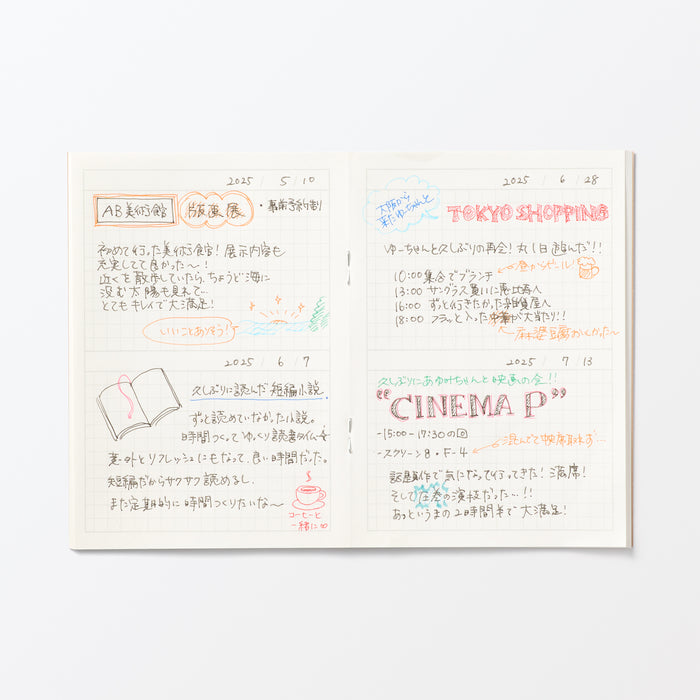 2025 / 5 / 10
AB美術館 版画展 ・事前予約制
初めて行った美術館!展示内容も
充実してて良かった〜!
近くを散歩していたら、ちょうど海に
沈む太陽も見れて…
とてもキレイで大満足!
いいことありそう!
2025 / 6 / 7
久しぶりに読んだ短編小説
ずっと読めていなかった小説。
時間つくってゆっくり読書タイム
意外とリフレッシュにもなって、良い時間だった。
短編だからサクサク読めるし、
また定期的に時間つくりたいな〜
コーヒーと
一緒に∞
2025 / 6 / 28
大阪から
来たゆーちゃんと
TOKYO SHOPPING
ゆーちゃんと久しぶりの再会!丸1日遊んだ!!
10:00 集合でブランチ
昼からビール!
13:00 サングラス買いに恵比寿へ
16:00 ずっと行きたかった雑貨屋へ
18:00 フラッと入った中華が大当たり!!
麻婆豆腐おいしかった〜
2025 / 7 / 13
久しぶりにあゆみちゃんと映画の会!!
"CINEMA P"
-15:00-17:30の回
-スクリーン8・F-4
混んでて中央席取れず…
話題作で気になって行ってきた!満席!
そして圧巻の演技だった…!!
あっというまの2時間半で大満足!